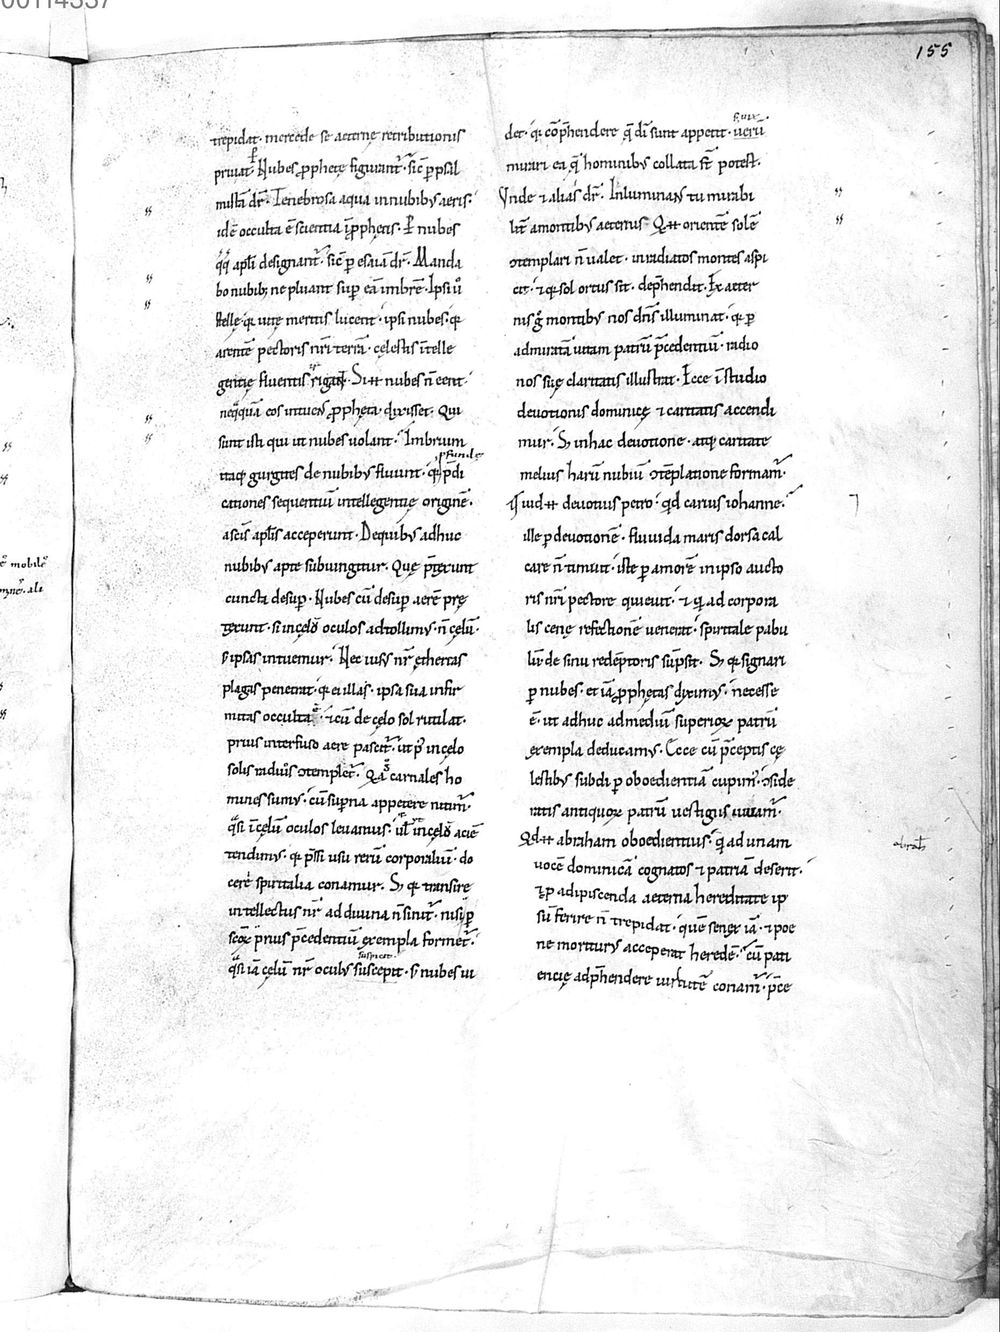 00114337
155
trepidat· mercede se aeternę retributionis
priuat· Nubes ꝓphetę figurant̄· sic̄ ꝑ psal
mistā dr̄· Tenebrosa aqua in nubibꝰ aeris·
idē occulta ē scientia in̄ ꝓphetis· Nubes
qꝗ apłi designant̄· sic̄ ꝑ esaiā dr̄· Manda
bo nubibꝫ ne pluant suꝑ eā imbrē· Ipsi ů
stellę· qꝛ uitę meritis lucent· ipsi nubes· qꝛ
arentē pectoris nr̄i terrā· cęlestis in̄telle
gentię fluentis rigant· Si n̄ nubes n̄ eēnt·
neq̄quā eos intuens ꝓpheta· dixisset· Qui
sunt isti qui ut nubes uolant· Imbrium
ꝓfunde
itaqꝫ gurgites de nubibꝰ fluunt· qꝛ p̄di
cationes sequentiū intellegentię originē·
a sc̄is apłis acceperunt· De quibꝰ adhuc
nubibꝰ apte subiungitur· Quę p̄tegunt
cuncta desuꝑ· Nubes cū desuꝑ aerē prę
tegunt· si in cęlū oculos adtollimꝰ· n̄ cęlū·
s; ipsas intuemur· Nec uisꝰ nr̄ ętherias
plagas penetrat· qꝛ ei illas· ipsa sua infir
mitas occultat· & cū de cęlo sol rutilat·
prius interfuso aere pascit̄· ut p9 in cęlo
solis radiůs ɔtemplet̄· Qa carnales ho
mines sumꝰ· cū suꝑna appetere nitim̄·
q̄si in̄ cęlū oculos leuamus· uł in cęlū aciē
tendimꝰ· qꝛ p̄ssi usu rerū corporaliū· do
cerè spiritalia conamur· S; qꝛ transire
intellectus nr̄· ad diuina n̄ sinit̄· nisi ꝑ
scōꝝ prius p̄cedentiū exempla formet̄·
suspicit·
q̄si iā cęlū nr̄ oculꝰ suscepit· s; nubes ui
det· qꝛ cōp̄hendere q̄ dī sunt appetit· uerū
mirari ea q̄ hominibꝰ collata st̄ potest·
Vnde & alias dr̄· Inluminans tu mirabi
lit̄ a montibꝰ aeternis· Q n̄ orientē solē
ɔtemplari n̄ ualet· inradiatos montes aspi
cit· & qꝛ sol ortus sit· dep̄hendit· Ex aeter
nis ǧ montibꝰ nos dn̄s illuminat· qꝛ ꝑ
admiratā uitam patrū p̄cedentiū· radio
nos suę claritatis illustrat· Ecce in̄ studio
deuotionis dominicę & caritatis accendi
mur· S; in hac deuotione· atqꝫ caritate
melius harū nubiū ɔtēplatione formam̄·
Quid n̄ deuotius petro· qd̄ carius iohanne·
ille ꝑ deuotionē· fluuida maris dorsa cal
care n̄ timuit· iste ꝑ amorē in ipso aucto
ris nr̄i pectore quieuit· & q ad corpora
lis cenę refectionē uenerat· spiritale pabu
lū· de sinu redēptoris sūpsit· S; qꝛ signari
ꝑ nubes· et iā ꝓphetas diximꝰ· necesse
ē· ut adhuc ad mediū superioꝝ patrū
exempla deducamꝰ· Ecce cū p̄ceptis cę
lestibꝰ subdi ꝑ oboedientiā cupim̄· ɔside
ratis antiquoꝝ patrū uestigiis iuuam̄·
Qd n̄ abraham oboedientius· q̄ ad unam
abrah̄
uocē dominicā cognatos & patriā deserit·
& ꝑ adipiscenda aeterna hereditate ip
sū ferire n̄ trepidat· quē senex iā· & poe
ne moriturꝰ acceperat heredē· cū pati
encię adp̄hendere uirtutē conam̄· p̄ce